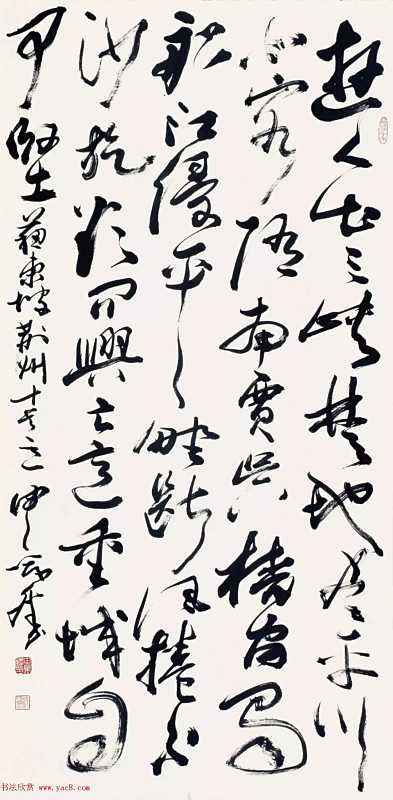 遊人出三峡楚地尽平川
北客随南贾吴樯間蜀
船江侵平野断風捲白
沙旋欲问興亡意重城自
古堅 蘇東坡荆州十首之一 申
书法欣赏 www.yac8.com